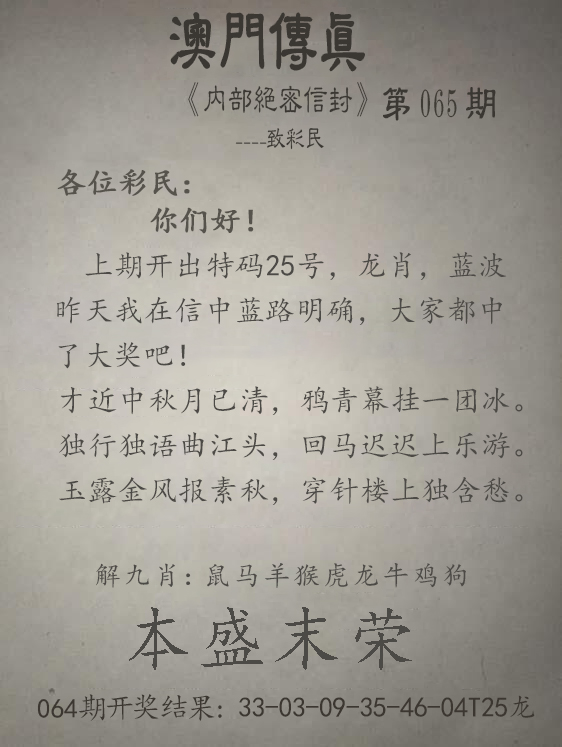 澳門傳眞
《内部絕密信封》第065期
----致彩民
各位彩民：
你们好！
上期开出特码25号，龙肖，蓝波
昨天我在信中蓝路明确，大家都中
了大奖吧！
才近中秋月已清，鸦青幕挂一团冰。
独行独语曲江头，回马迟迟上乐游。
玉露金风报素秋，穿针楼上独含愁。
解九肖：鼠马羊猴虎龙牛鸡狗
本盛末荣
064期开奖结果：33-03-09-35-46-04T25龙